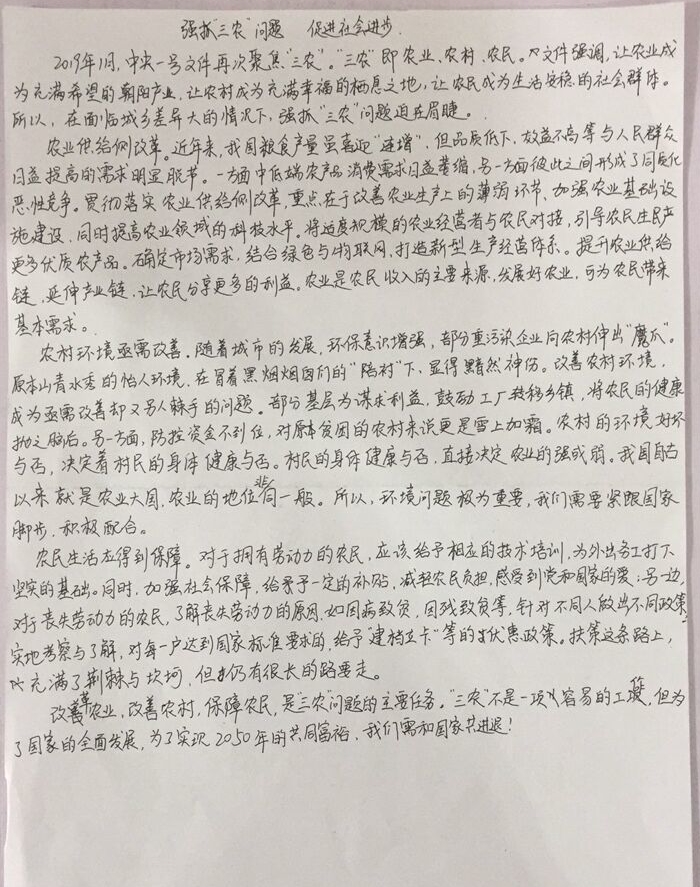 强抓“三农”问题 促进社会进步
2019年1月,中央一号文件再次聚焦“三农”。“三农”即农业、农村、农民。文件强调,让农业成
为充满希望的朝阳产业,让农村成为充满幸福的栖息之地,让农民成为生活安稳的社会群体。
所以,在面临城乡差异大的情况下,强抓“三农”问题迫在眉睫。
农业供给侧改革。近年来,我国粮食产量虽喜迎“连增”,但品质低下,效益不高等与人民群众
日益提高的需求明显脱节。一方面中低端农产品消费需求日益萎缩,另一方面彼此之间形成了同质化
恶性竞争。贯彻落实农业供给侧改革,重点在于改善农业生产上的薄弱环节,加强农业基础设
施建设,同时提高农业领域的科技水平。将适度规模的农业经营者与农民对接,引导农民生产
更多优质农产品。确定市场需求,结合绿色与物联网,打造新型生产经营体系。提升农业供给
链,延伸产业链,让农民分享更多的利益。农业是农民收入的主要来源,发展好农业,可为农民带来
基本需求。
农村环境亟需改善。随着城市的发展,环保意识增强,部分重污染企业向农村伸出“魔爪”。
原本山青水秀的怡人环境,在冒着黑烟烟囱们的“陪衬”下,显得黯然神伤。改善农村环境,
成为亟需改善却又另人棘手的问题。部分基层为谋求利益,鼓励工厂转移乡镇,将农民的健康
抛之脑后。另一方面,防控资金不到位,对原本贫困的农村来说更是雪上加霜。农村的环境好坏
与否,决定着村民的身体健康与否。村民的身体健康与否,直接决定农业的强或弱。我国自古
以来就是农业大国,农业的地位非同一般。所以,环境问题极为重要,我们需要紧跟国家
脚步,积极配合。
农民生活应得到保障。对于拥有劳动力的农民,应该给予相应的技术培训,为外出务工打下
坚实的基础。同时,加强社会保障,给予一定的补贴,减轻农民负担,感受到党和国家的爱;另一边,
对于丧失劳动力的农民,了解丧失劳动力的原因,如因病致贫,因残致贫等,针对不同人做出不同政策,
实地考察与了解,对每一户达到国家标准要求的,给予“建档立卡”等的优惠政策。扶策这条路上,
充满了荆棘与坎坷,但仍有很长的路要走。
改革农业,改善农村,保障农民,是“三农”问题的主要任务。“三农”不是一项容易的工作,但为
了国家的全面发展,为了实现2050年的共同富裕,我们需和国家共进退!